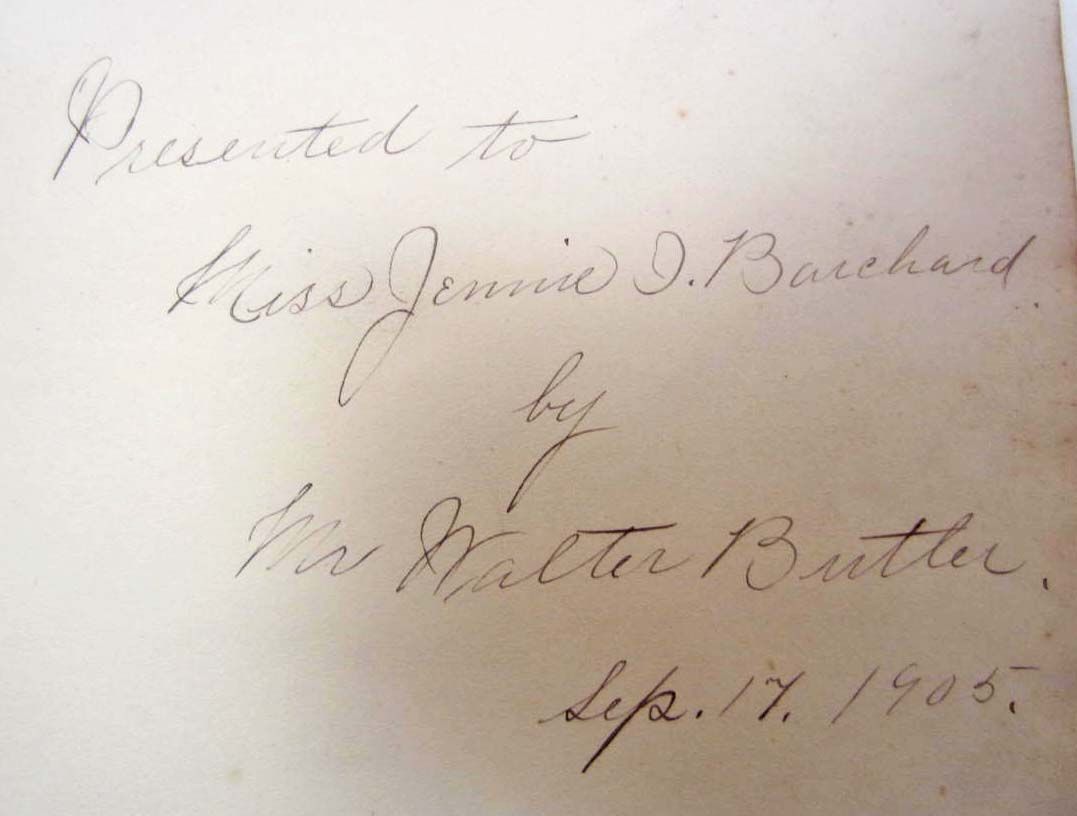 Presented to
Miss Jennie I. Barchard.
by
Mr Walter Butler.
Sep. 17. 1905.